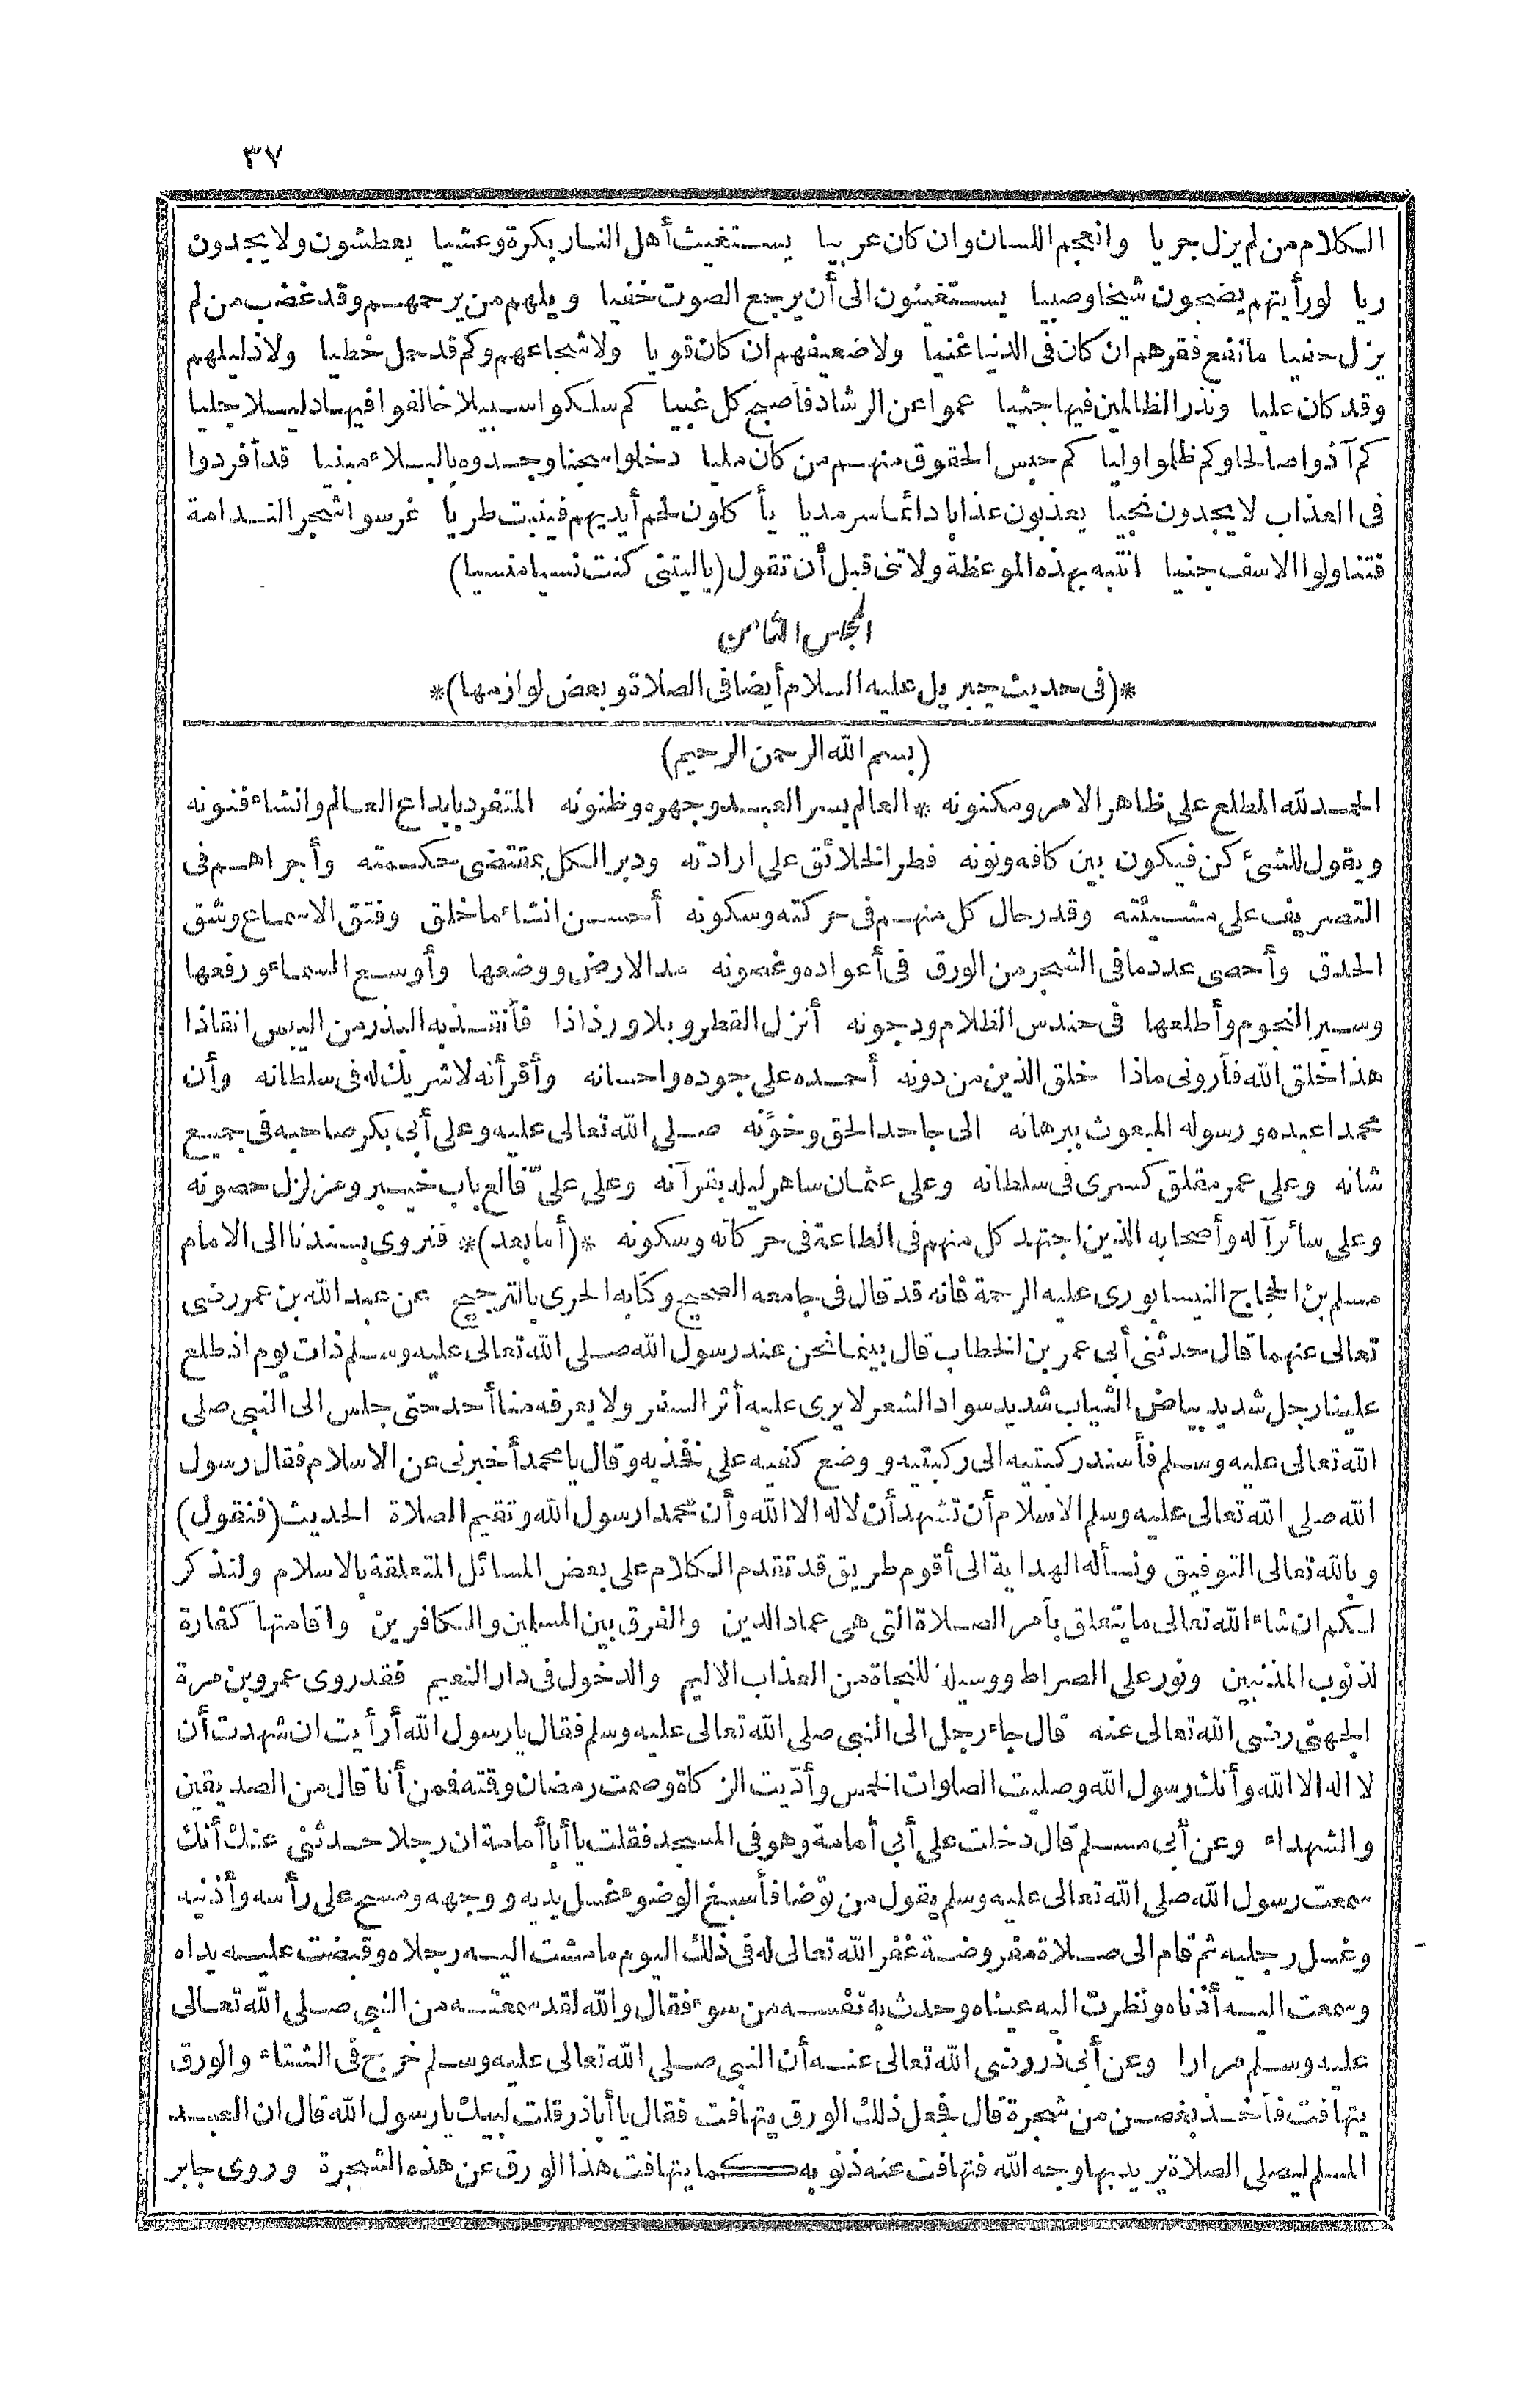 ٣٧
الكلام من لم يزل جريا وانعجم اللسان وان كان عربيا يستغيث أهل النار بكرة وعشيا يعطشون ولا يجدون
ريا لو رأيتهم يضجون شيخا وصبيا يستغيثون الى أن يرجع الصوت خفيا ويلهم من يرحمهم وقد غضب من لم
يزل حفيا ما نفع فقرهم ان كان فى الدنيا غنيا ولا ضعيفهم ان كان قويا ولا شجاعهم وكم قد حمل خطيا ولا ذليلهم
وقد كان عليا ونذر الظالمين فيها جثيا عموا عن الرشاد فأصبح كل غبيا كم سلكوا سبيلا خالفوا فيها دليلا جليا
كم آذوا صالحا وكم ظلموا وليا كم حبس الحقوق منهم من كان مليا دخلوا سجنا وجدوه بالبلاء مبنيا قد أفردوا
فى العذاب لا يجدون نجيا يعذبون عذابا دائما سرمديا يأكلون لحم أيديهم فينبت طريا غرسوا شجر الندامة
فتناولوا الاسف جنيا انتبه بهذه الموعظة ولا تنى قبل أن تقول (ياليتنى كنت نسيا منسيا)
المجلس الثامن
*(فى حديث جبريل عليه السلام أيضا فى الصلاة وبعض لوازمها)*
(بسم الله الرحمن الرحيم)
الحمد لله المطلع على ظاهر الامر ومكنونه * العالم بسر العبد وجهره وظنونه المتفرد بابداع العالم وانشاء فنونه
ويقول للشئ كن فيكون بين كافه ونونه فطر الخلائق على ارادته ودبر الكل بمقتضى حكمته وأجراهم فى
التصريف على مشيئته وقدر حال كل منهم فى حركته وسكونه أحسن انشاء ما خلق وفتق الاسماع وشق
الحدق وأحصى عدد ما فى الشجر من الورق فى أعواده وغصونه مد الارض ووضعها وأوسع السماء ورفعها
وسير النجوم وأطلعها فى حندس الظلام ودجونه أنزل القطر وبلا ورذاذا فأنقذ به البذر من اليبس انقاذا
هذا خلق الله فأرونى ماذا خلق الذين من دونه أحمده على جوده واحسانه وأقر أنه لا شريك له فى سلطانه وأن
محمدا عبده ورسوله المبعوث ببرهانه الى جاحد الحق وخوّنه صلى الله تعالى عليه وعلى أبى بكر صاحبه فى جميع
شانه وعلى عمر مقلق كسرى فى سلطانه وعلى عثمان ساهر ليله بقرآنه وعلى علىّ قالع باب خيبر ومزلزل حصونه
وعلى سائر آله وأصحابه الذين اجتهد كل منهم فى الطاعة فى حركاته وسكونه *(أما بعد)* فنروى بسندنا الى الامام
مسلم بن الحجاج النيسابورى عليه الرحمة فانه قد قال فى جامعه الصحيح وكتابه الحرى بالترجيح عن عبد الله بن عمر رضى
تعالى عنهما قال حدثنى أبى عمر بن الخطاب قال بينما نحن عند رسول الله صلى الله تعالى عليه وسلم ذات يوم اذ طلع
علينا رجل شديد بياض الثياب شديد سواد الشعر لا يرى عليه أثر السفر ولا يعرفه منا أحد حتى جلس الى النبى صلى
الله تعالى عليه وسلم فأسند ركبتيه الى ركبتيه ووضع كفيه على فخذيه وقال يا محمد أخبرنى عن الاسلام فقال رسول
الله صلى الله تعالى عليه وسلم الاسلام أن تشهد أن لا اله الا الله وأن محمدا رسول الله وتقيم الصلاة الحديث (فنقول)
وبالله تعالى التوفيق ونسأله الهداية الى أقوم طريق قد تقدم الكلام على بعض المسائل المتعلقة بالاسلام ولنذكر
لكم ان شاء الله تعالى ما يتعلق بأمر الصلاة التى هى عماد الدين والفرق بين المسلمين والكافرين واقامتها كفارة
لذنوب المذنبين ونور على الصراط ووسيلة للنجاة من العذاب الاليم والدخول فى دار النعيم فقد روى عمرو بن مرة
الجهنى رضى الله تعالى عنه قال جاء رجل الى النبى صلى الله تعالى عليه وسلم فقال يا رسول الله أرأيت ان شهدت أن
لا اله الا الله وأنك رسول الله وصليت الصلوات الخمس وأدّيت الزكاة وصمت رمضان وقته فمن أنا قال من الصديقين
والشهداء وعن أبى مسلم قال دخلت على أبى أمامة وهو فى المسجد فقلت يا أبا أمامة ان رجلا حدثنى عنك أنك
سمعت رسول الله صلى الله تعالى عليه وسلم يقول من توّضا فأسبغ الوضوء غسل يديه ووجهه ومسح على رأسه وأذنيه
وغسل رجليه ثم قام الى صلاة مفروضة غفر الله تعالى له فى ذلك اليوم ما مشت اليه رجلاه وقبضت عليه يداه
وسمعت اليه أذناه ونظرت اليه عيناه وحدث به نفسه من سوء فقال والله لقد سمعته من النبى صلى الله تعالى
عليه وسلم مرارا وعن أبى ذر رضى الله تعالى عنه أن النبى صلى الله تعالى عليه وسلم خرج فى الشتاء والورق
يتهافت فأخذ بغصن من شجرة قال فجعل ذلك الورق يتهافت فقال يا أباذر قلت لبيك يا رسول الله قال ان العبد
المسلم ليصلى الصلاة يريد بها وجه الله فتهافت عنه ذنوبه كما يتهافت هذا الورق عن هذه الشجرة وروى جابر